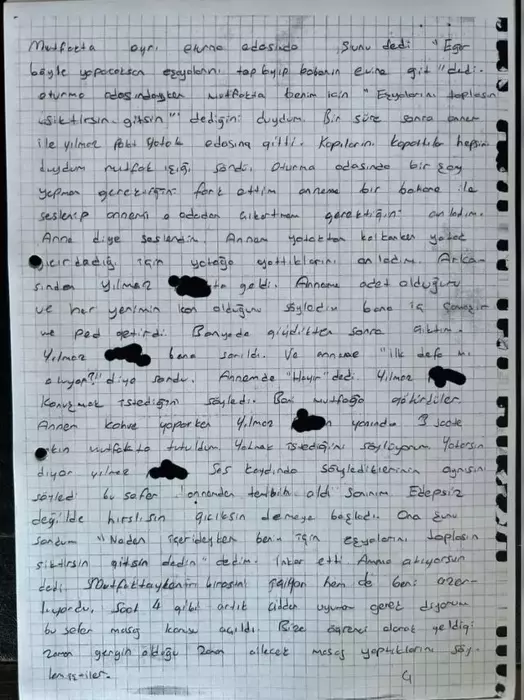 Mutfakta ayrı oturma odasında şunu dedi "Eğer
böyle yapacaksan eşyalarını toplayıp babanın evine git" dedi.
oturma odasındayken mutfakta benim için "Eşyalarını toplasın
siktirsin gitsin" dediğini duydum. Bir süre sonra annem
ile yılmaz yatak odasına gitti. Kapıların kapattılar hepsini
duydum mutfak ışığı söndü. Oturma odasında bir şey
yapmam gerektiğini fark ettim anneme bir bahane ile
seslenip annemi o odadan çıkartmam gerektiğini anladım.
Anne diye seslendim. Annem yataktan kalkarken yatak
gıcırdadığı için yatağa yattıklarını anladım. Arka-
sından yılmaz da geldi. Anneme adet olduğumu
ve her yerimin kan olduğunu söyledim bana iç çamaşır
ve ped getirdi. Banyoda giydikten sonra çıktım.
Yılmaz bana sarıldı. Ve anneme "ilk defa mı
oluyor?" diye sordu. Annemde "Hayır" dedi. Yılmaz
konuşmak istediğini söyledi. Beni mutfağa götürdüler.
Annem kahve yaparken Yılmaz yanında 3 saate
yakın mutfakta tutuldum. Yatmak istediğimi söylüyorum yatarsın
diyor yılmaz Ses kaydında söylediklerinin aynısını
söyledi bu sefer annemden tembih aldı sanırım. Edepsiz
değilde hırslısın gıcıksın demeye başladı. Ona şunu
sordum "Neden içerideyken benim için eşyalarını toplasın
siktirsin gitsin dedin" dedim. İnkar etti Amma atıyorsun
dedi. Mutfaktayken birasını içiyor hem de beni azar-
lıyordu. Saat 4 gibi artık cidden uyumam gerek diyorum
bu sefer masaj konusu açıldı. Bize öğrenci olarak geldiği
zaman gergin olduğu zaman ailecek masaj yaptıklarını söy-
lemişler.